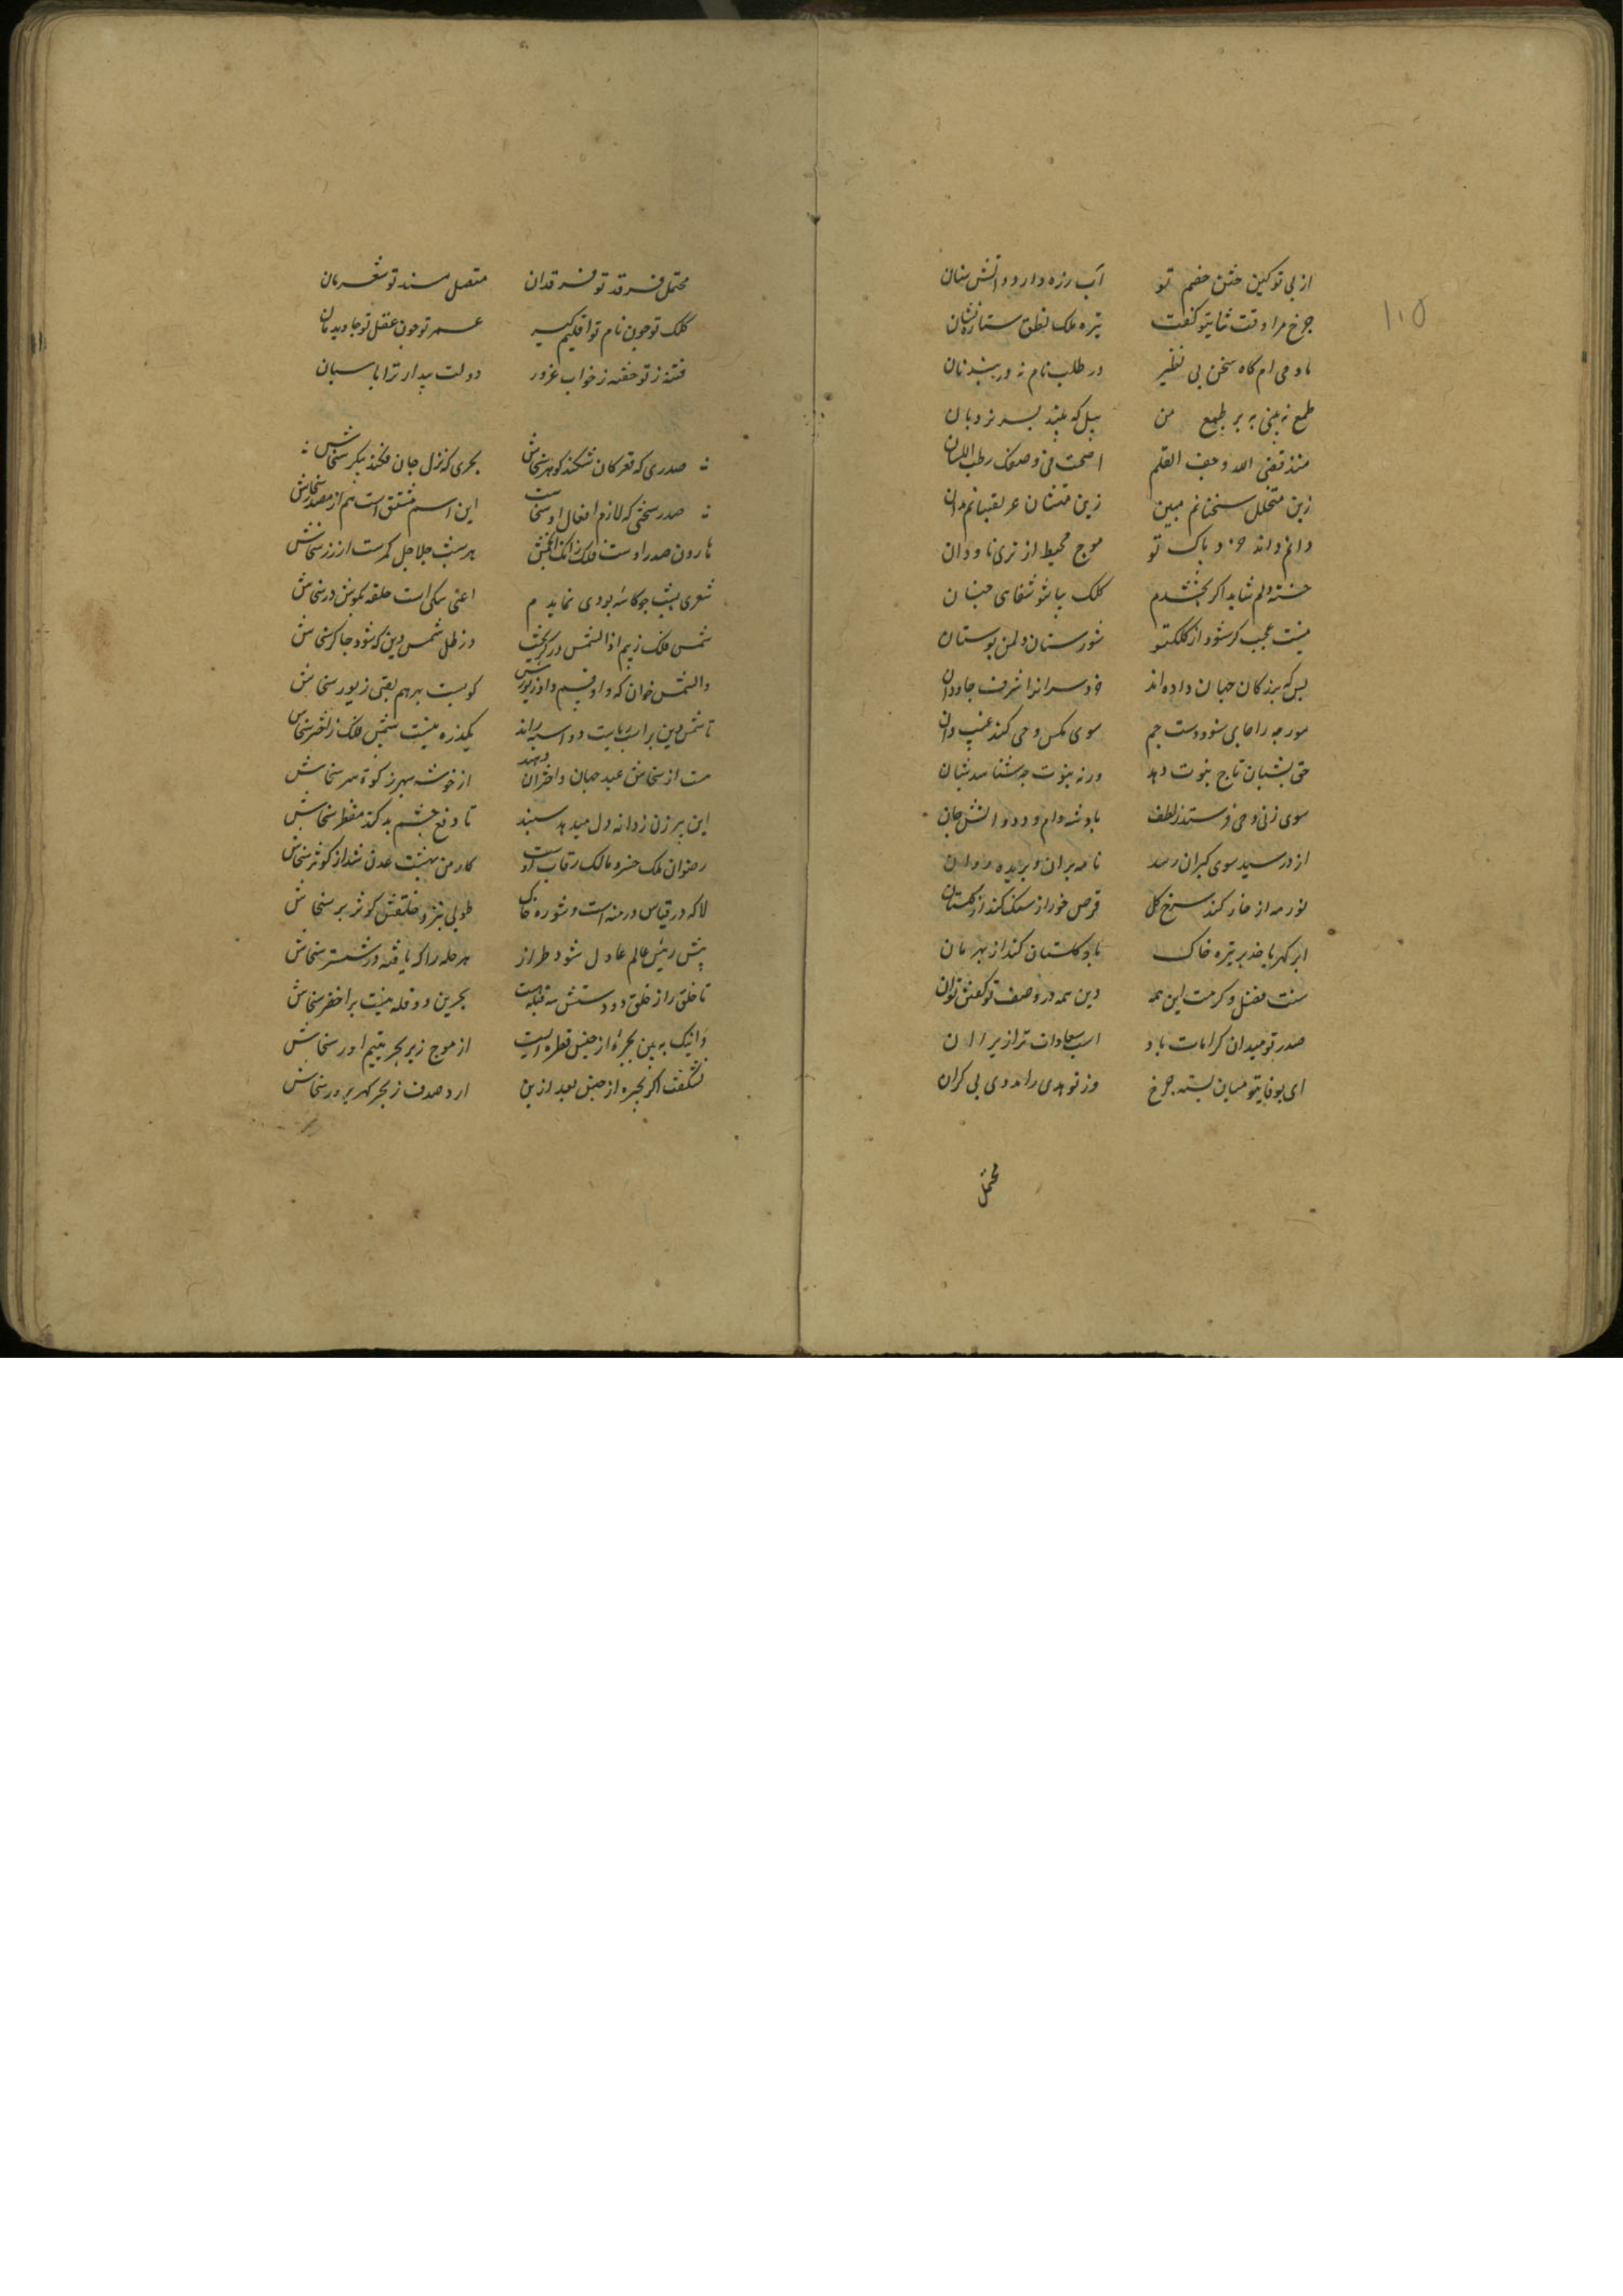 ۱۰۵
از پی توکین ختن خصم تو آب رزه دارد و آتش سنان
چرخ مرا وقت ثنایتو کفت تیره ملک نطق ستاره نشان
مادحی ام کاه سخن بی نظیر در طلب نام نه دربند نان
طمع نه بینی به بر طبع من پیل که بیند بسر نردبان
منذ قضی الله و جف القلم اصبحت فی وصفک رطب اللسان
زین متنحلل سخنانم مبین زین
دانم داند خرد پاک تو موج محیط از تری ناودان
خسته دلم شاید اکر بخشدم کلک شفای جنان
نیست عجب کر شود از کلکتو شورستان دلمن بوستان
بس که بزرکان جهان داده اند خرد سرانرا شرف جاودان
مورچه را جای شود دست جم سوی مکس وحی کند غیب دان
حق بشبان تاج نبوت دهد ورنه نبوت چه شناسد شبان
سوی زنی وحی فرستد ز لطف با دو دام و دد و انس و جان
از در سید سوی کبران رسد نامه بران و بریده روان
نور مه از خار کند سرخ کل قرص خور از سنک کند
ابر کهربا خذ بر تیره خاک باد کلستان کند از مهرمان
سنت فضل و کرمت این همه دین همه در وصف تو کفتن توان
صدر تو میدان کرامات باد اسب سعادات ترا زیر ران
ای بوفایتو میان بسته چرخ وز تو هدی را مددی بی کران
محتمل
محتمل فرقد تو فرقدان متصل مسند تو شعریان
کلک تو چون نام تو اقلیم کیر عمر تو چون عقل تو جاویدمان
فتنه ز تو خفته ز خواب غرور دولت بیدار ترا پاسبان
صدری که قعر کان شکند کوهر سخاش بحری که نزل جان فکند پیکر سخاش
صدر سخی که لازم افعال او سخاست این اسم مشتق است هم از مصدر سخاش
هارون صدر اوست فلک زانک انجمش هر شب جلاجل کمرست از زر سخاش
شعری بشب چو کاسه یوزی نمایدم اعنی سکی است حلقه بکوش در سخاش
شمس فلک ز بیم اذا الشمس در کریخت در ظل شمس دین که شود چاکر سخاش
والشمس خوان که واو قسم داد زیورش کوبست بر هم بقی زیور سخاش
تا شمس دین براسب سیه راند یکذره نیست شمس فلک ز لشکر سخاش
هست از سخاش عید جهان واختران دهند از خوشه سپهر زکوة سر سخاش
این پیرزن ز دانه دل میدهد سپند تا دفع چشم بد کند از منظر سخاش
رضوان ملک خسرو مالک رقاب اوست کار من بهشت عدن شد از کوثر سخاش
لا که در قیاس درمنه است و شوره خاک طوبی نیزد و خلقش کوثر بر سخاش
پیش رئیس عالم عادل شود طراز هر حله را که بافته در ششتر سخاش
تا خلق را ز خلق و دو دستش سه قبله هست بحرین دو قله نیست بر اخضر سخاش
وانک به بین بحیره ارجیش قطره ایست از موج زیر بحر یتیم آور سخاش
نشکفت اکر بحیره ارجیش بعد ازین آرد صدف ز بحر کهر پرور سخاش